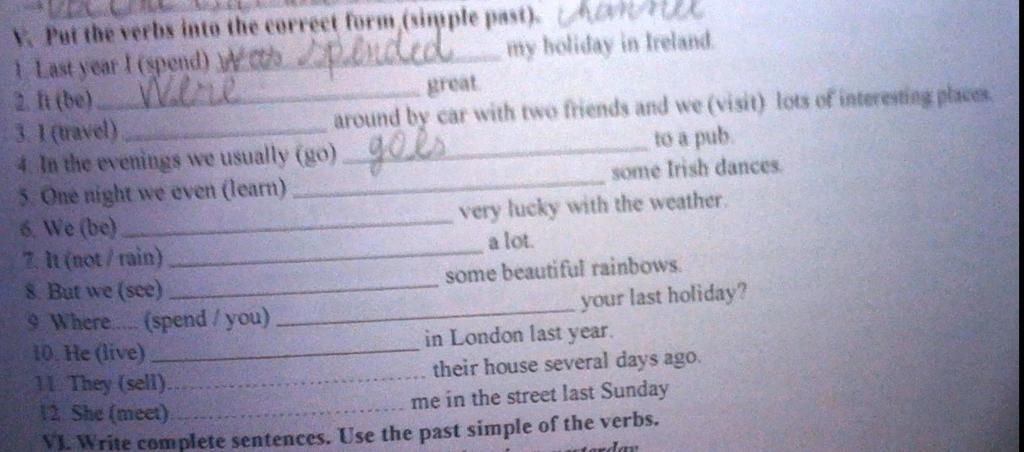 V. Put the verbs into the correct form (simple past). channel
1. Last year I (spend) was spended my holiday in Ireland.
2. It (be) Were great.
3. I (travel) around by car with two friends and we (visit) lots of interesting places.
4. In the evenings we usually (go) goes to a pub.
5. One night we even (learn) some Irish dances.
6. We (be) very lucky with the weather.
7. It (not / rain) a lot.
8. But we (see) some beautiful rainbows.
9 Where.... (spend / you) your last holiday?
10. He (live) in London last year.
11. They (sell)........................... their house several days ago.
12. She (meet)........................... me in the street last Sunday
VI. Write complete sentences. Use the past simple of the verbs.
yesterday